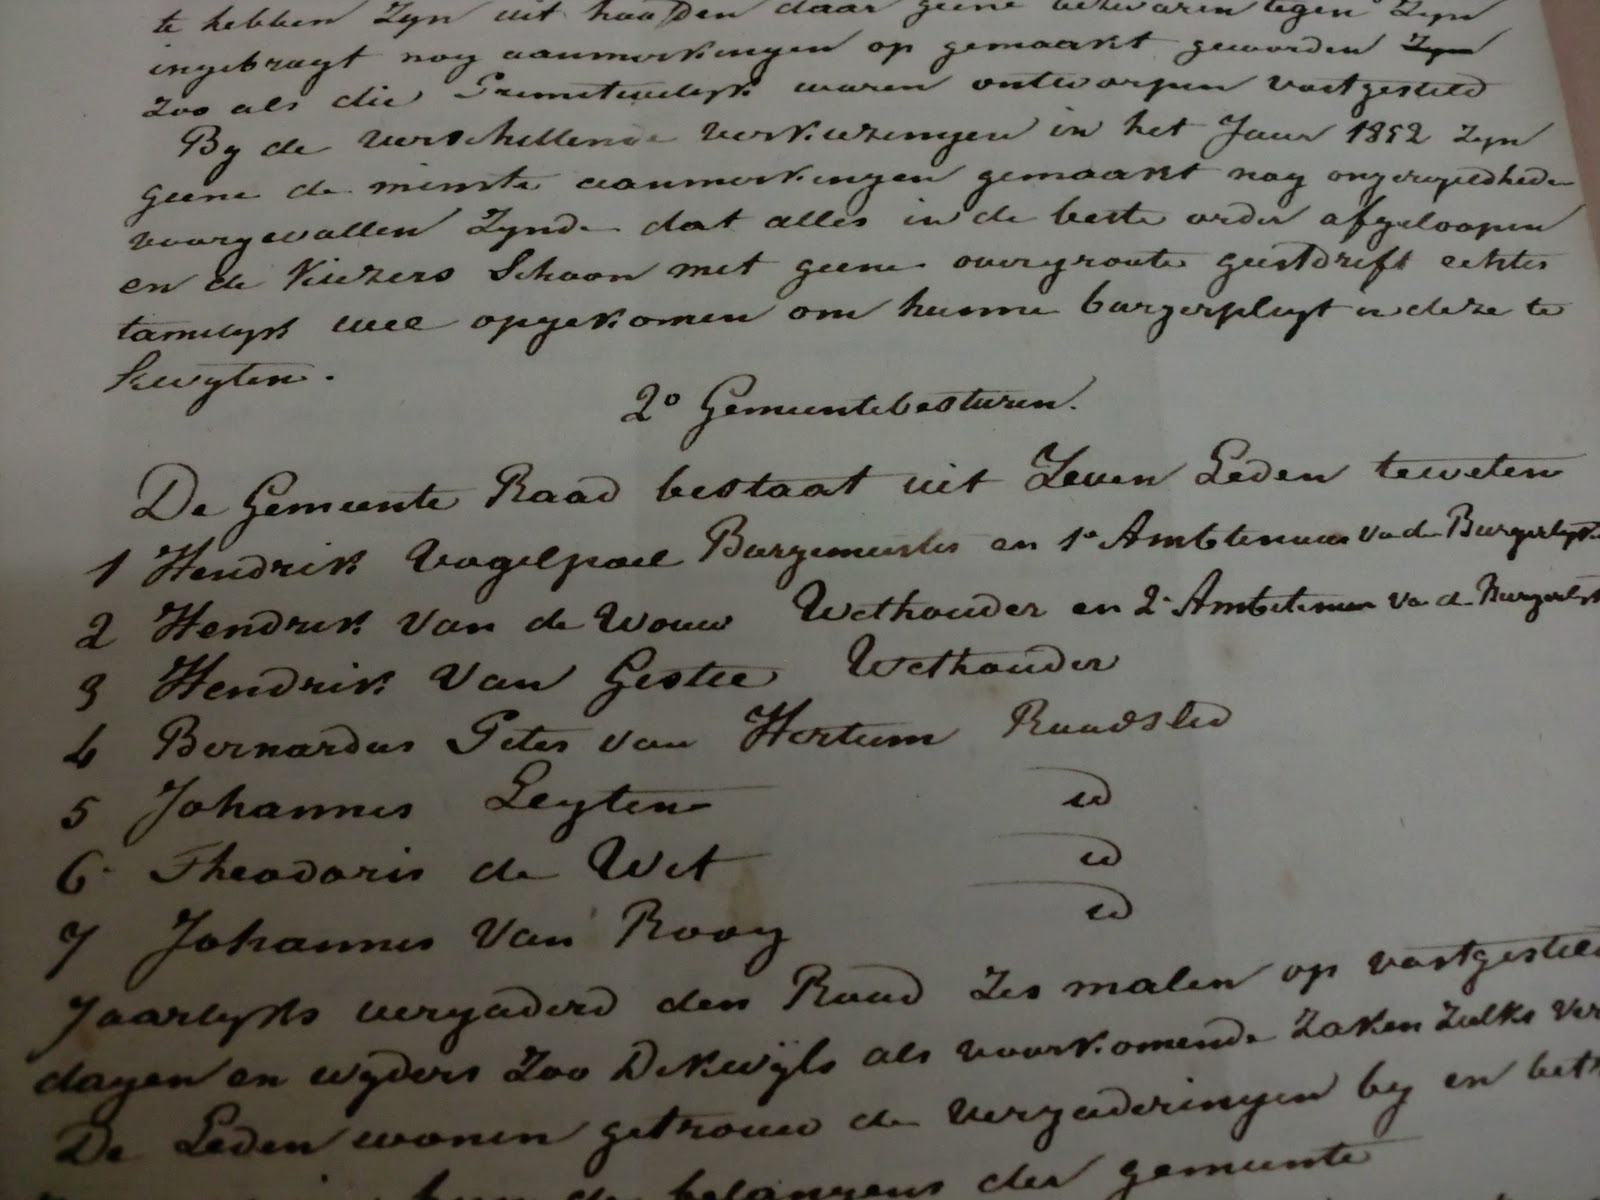 te hebben Zyn uit houden daar geene bezwaren tegen Zyn
ingebragt nog aanmerkingen op gemaakt geworden Zyn
Zoo als die Primetievelyk waren ontworpen vastgesteld
By de verschillende verkiezingen in het Jaar 1852 Zyn
geene de minste aanmerkingen gemaakt nog ongeregeldheden
voorgevallen Zynde dat alles in de beste order afgeloopen
en de Kiezers Schoon met geene overgroote geestdrift echter
tamelyk wel opgekomen om hunne burgerplugt in deze te
kwyten.
2o Gemeentebesturen.
De Gemeente Raad bestaat uit Zeven Leden teweten
1 Hendrik Vogelpoel Burgemeester en 1e Ambtenaar va de Burgerlyk
2 Hendrik Van de Wouw Wethouder en 2e Ambtenaar va d Burgerlyk
3 Hendrik Van Gestel Wethouder
4 Bernardus Peter van Hortum Raadslid
5 Johannes Leyten id
6 Theodoris de Wit id
7 Johannes Van Rooy id
Jaarlyks vergaderd den Raad Zes malen op vastgesteld
dagen en wyders Zoo Dikwijls als voorkomende Zaken Zulks ver
De Leden wonen getrouw de vergaderingen by en beth
hun de belangens der gemeente